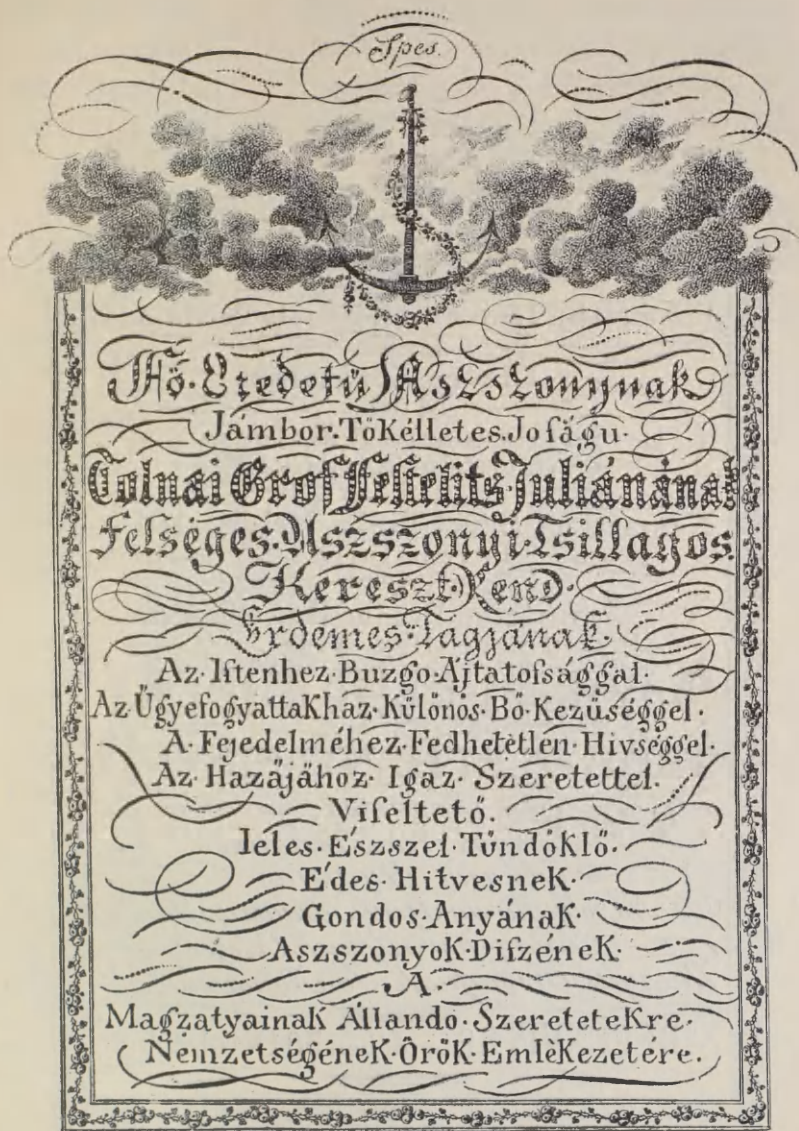 Spes.
Fő·Eredetű Aszszonynak
Jámbor·Tőkélletes·Joſágu·
Tolnai Grof Feſtetits Juliánának
Felséges·Aszszonyi·Tsillagos
Kereszt·Rend·
Érdemes·Tagjának
Az·Iſtenhez·Buzgo·Ájtatoſsággal·
Az·Ügyefogyattakház·Külőnős·Bő·Kezűséggel·
A·Fejedelméhez·Fedhetètlen·Hivséggel·
Az·Hazájához·Igaz·Szeretettel.
Viſeltető.
Jeles·Észszel·Tündőklő·
Édes·Hitvesnek·
Gondos·Anyának·
Aszszonyok·Diſzének·
A·
Magzatyainak Állando·Szeretetekre·
Nemzetségének·Őrők·Emlèkezetére.